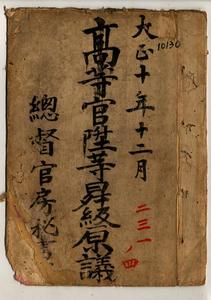 大正十年十二月
10130
高等官陞等昇級原議
二三一ノ四
總督官房秘書